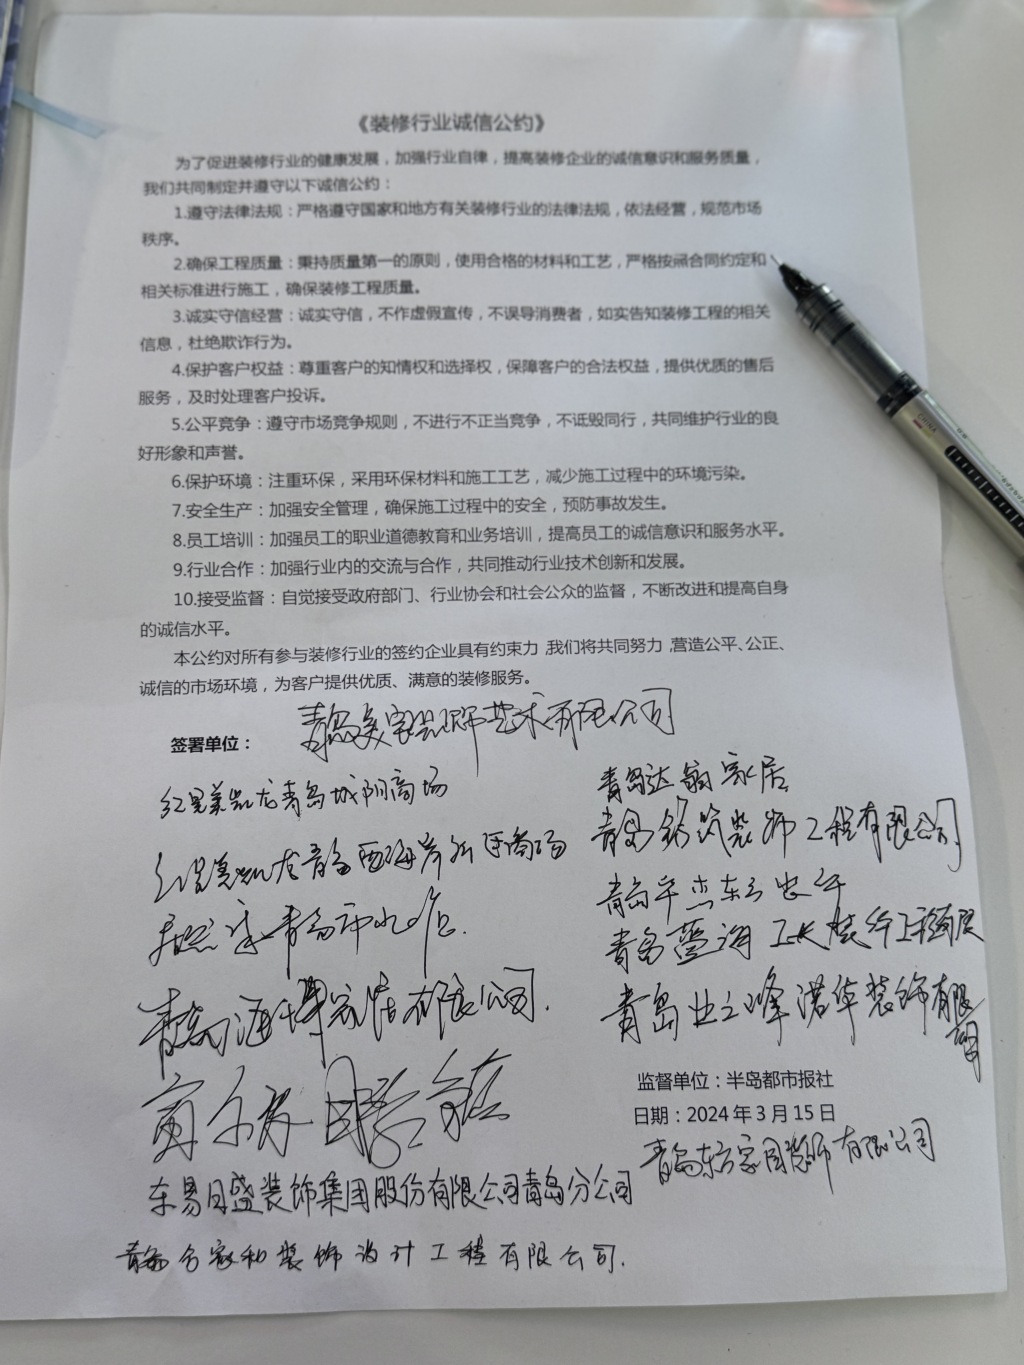 《装修行业诚信公约》
为了促进装修行业的健康发展，加强行业自律，提高装修企业的诚信意识和服务质量，
我们共同制定并遵守以下诚信公约：
1.遵守法律法规：严格遵守国家和地方有关装修行业的法律法规，依法经营，规范市场
秩序。
2.确保工程质量：秉持质量第一的原则，使用合格的材料和工艺，严格按照合同约定和
相关标准进行施工，确保装修工程质量。
3.诚实守信经营：诚实守信，不作虚假宣传，不误导消费者，如实告知装修工程的相关
信息，杜绝欺诈行为。
4.保护客户权益：尊重客户的知情权和选择权，保障客户的合法权益，提供优质的售后
服务，及时处理客户投诉。
5.公平竞争：遵守市场竞争规则，不进行不正当竞争，不诋毁同行，共同维护行业的良
好形象和声誉。
6.保护环境：注重环保，采用环保材料和施工工艺，减少施工过程中的环境污染。
7.安全生产：加强安全管理，确保施工过程中的安全，预防事故发生。
8.员工培训：加强员工的职业道德教育和业务培训，提高员工的诚信意识和服务水平。
9.行业合作：加强行业内的交流与合作，共同推动行业技术创新和发展。
10.接受监督：自觉接受政府部门、行业协会和社会公众的监督，不断改进和提高自身
的诚信水平。
本公约对所有参与装修行业的签约企业具有约束力,我们将共同努力,营造公平、公正、
诚信的市场环境，为客户提供优质、满意的装修服务。
签署单位：
青岛美家 艺术有限公司
红星美凯龙青岛城阳商场
青岛达翰家居
红星美凯龙青岛西海岸 商场
青岛 筑装饰工程有限公司
青岛平
青岛
青岛蓝海工长装饰工程有限
青岛海博家居有限公司.
青岛业之峰诺华装饰有限公司
监督单位：半岛都市报社
日期：2024年3月15日
青岛东方家园装饰有限公司
东易日盛装饰集团股份有限公司青岛分公司
青岛 家和装饰设计工程有限公司.
CHINA